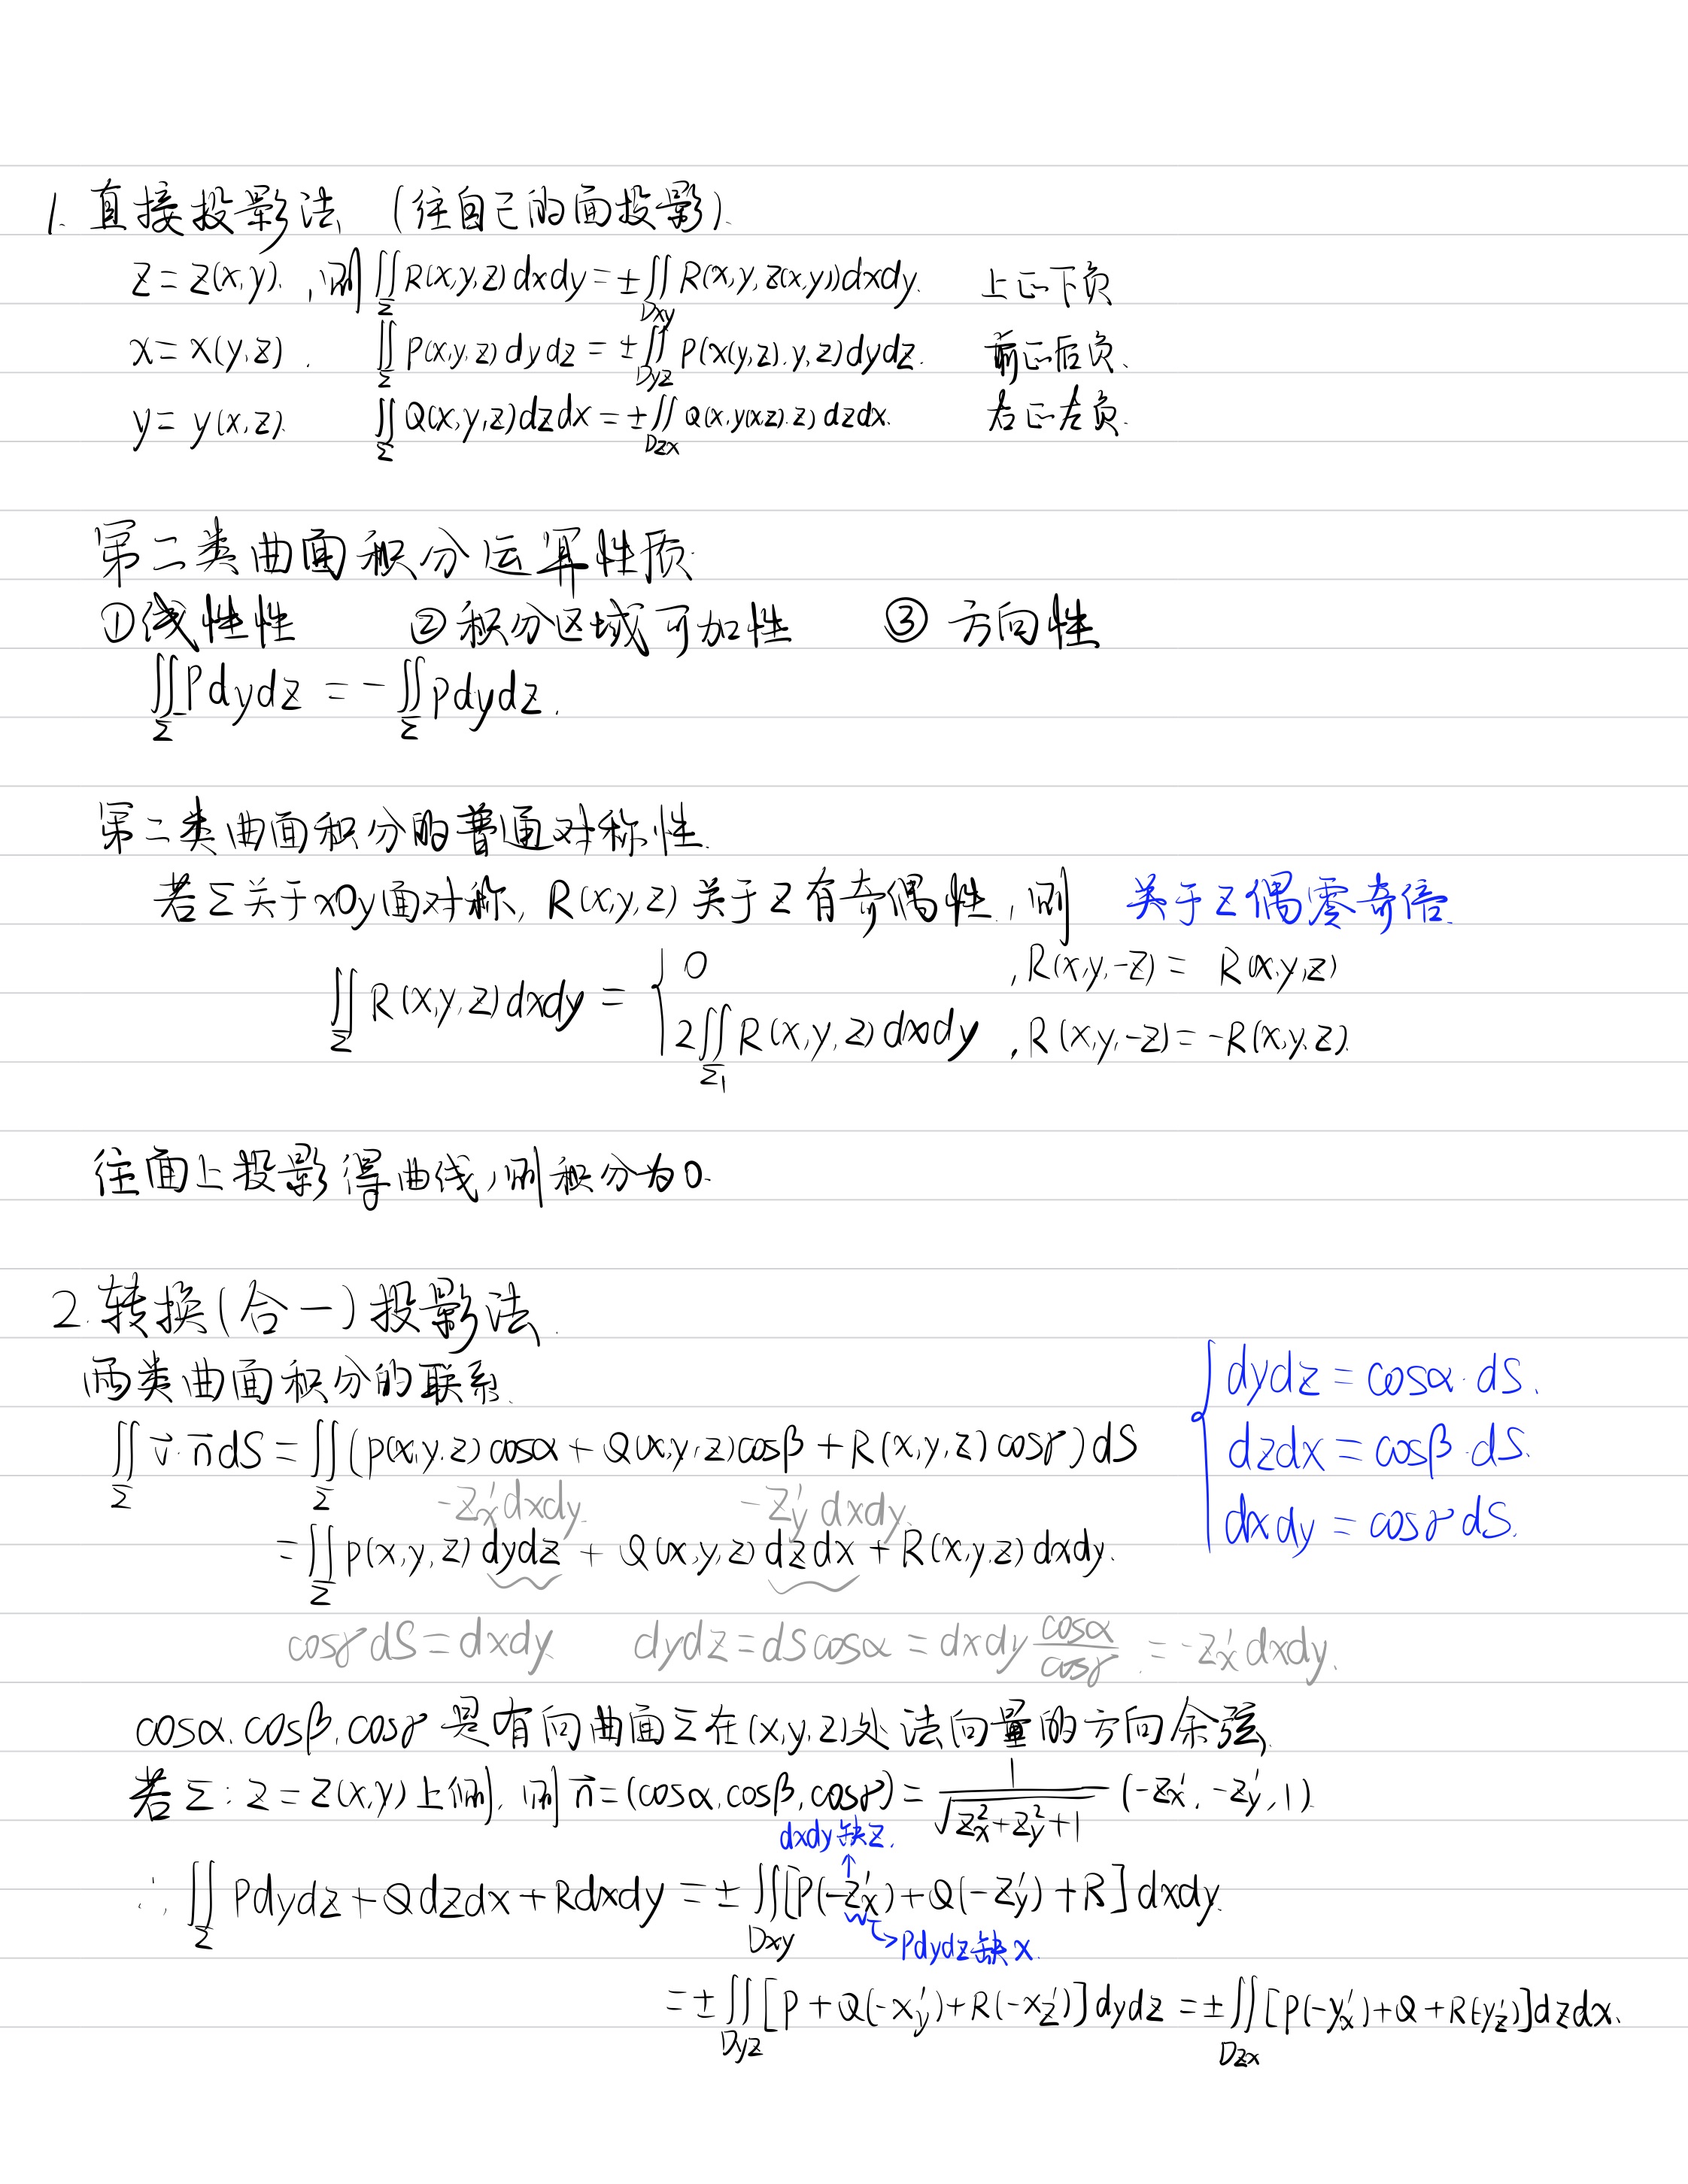 1. 直接投影法 (往自己的面投影).
z = z(x,y). ,则 ∬_Σ R(x,y,z) dxdy = ±∬_Dxy R(x,y,z(x,y))dxdy. 上正下负
x = x(y,z). ∬_Σ P(x,y,z) dydz = ±∬_Dyz P(x(y,z).y,z)dydz. 前正后负.
y = y(x,z). ∬_Σ Q(x,y,z)dzdx = ±∬_Dzx Q(x,y(x,z).z) dzdx. 右正左负.
第二类曲面积分运算性质.
①线性性 ②积分区域可加性 ③ 方向性
∬_Σ⁻ Pdydz = -∬_Σ Pdydz.
第二类曲面积分的普通对称性.
若Σ关于xOy面对称, R(x,y,z) 关于z有奇偶性, 则 关于z偶零奇倍.
∬_Σ R(x,y,z)dxdy = { 0 , R(x,y,-z) = R(x,y,z)
2∬_Σ₁ R(x,y,z)dxdy , R(x,y,-z) = -R(x,y,z).
往面上投影得曲线,则积分为0.
2. 转换(合一)投影法.
两类曲面积分的联系.
{ dydz = cosα·dS.
dzdx = cosβ·dS.
dxdy = cosγdS.
∬_Σ v⃗·n⃗dS = ∬_Σ (P(x,y,z)cosα + Q(x,y,z)cosβ + R(x,y,z)cosγ)dS
-z'ₓdxdy. -z'_y dxdy.
= ∬_Σ P(x,y,z) dydz + Q(x,y,z) dzdx + R(x,y,z) dxdy.
cosγdS = dxdy. dydz = dScosα = dxdy cosα/cosγ = -z'ₓdxdy.
cosα.cosβ.cosγ 是有向曲面Σ在(x,y,z)处法向量的方向余弦,
若Σ: z = z(x,y) 上侧, 则 n⃗ = (cosα,cosβ,cosγ) = 1/√(zₓ²+z_y²+1) (-zₓ', -z_y', 1).
dxdy缺z.
↑
∴ ∬_Σ Pdydz + Qdzdx + Rdxdy = ± ∬_Dxy [P(-zₓ')+Q(-z_y')+R]dxdy.
→Pdydz缺x.
= ±∬_Dyz [P + Q(-x_y')+R(-x_z')]dydz = ±∬_Dzx [P(-yₓ')+Q+R(-y_z')]dzdx.